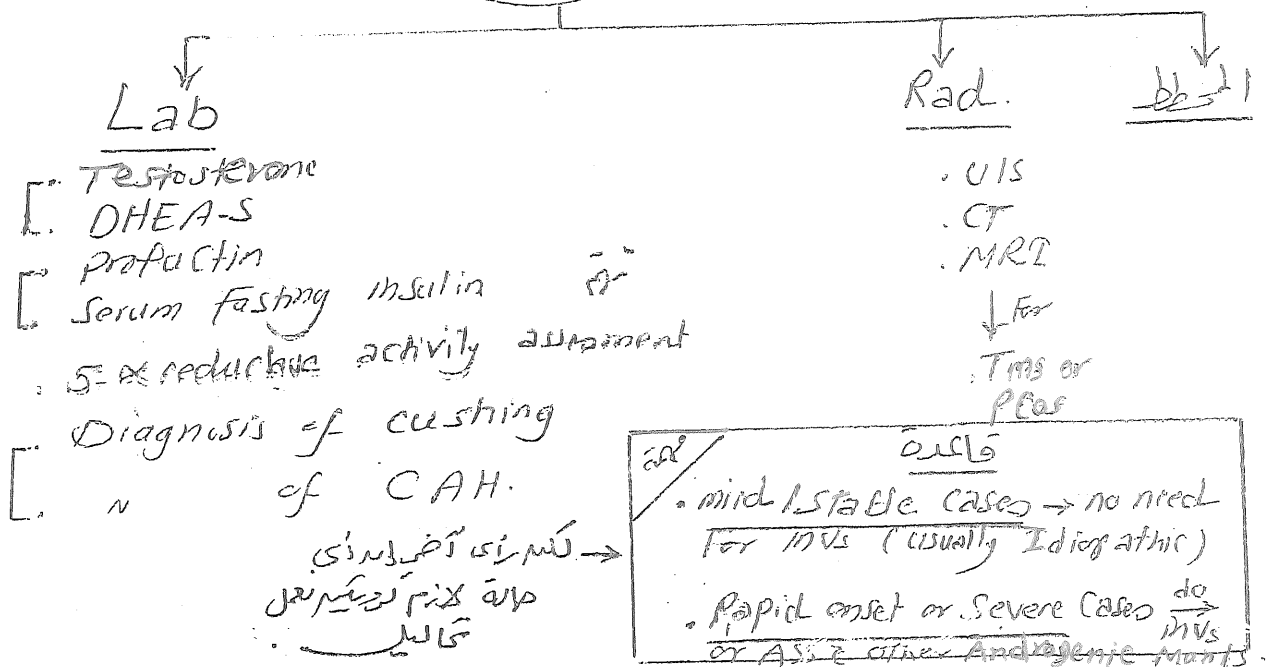 Lab
Testosterone
DHEA-S
Prolactin
Serum fasting insulin
5-α reductase activity assessment
Diagnosis of cushing
" of CAH.
حالة لازم نعمل
تحاليل
Rad.
. U/S
. CT
. MRI
↓ For
. Tms or
PCos
قاعدة
. mild / Stable Cases → no need
For INVs (usually Idiopathic)
. Rapid onset or Severe Cases do → INVs
or ASS. c other Androgenic Manfts.